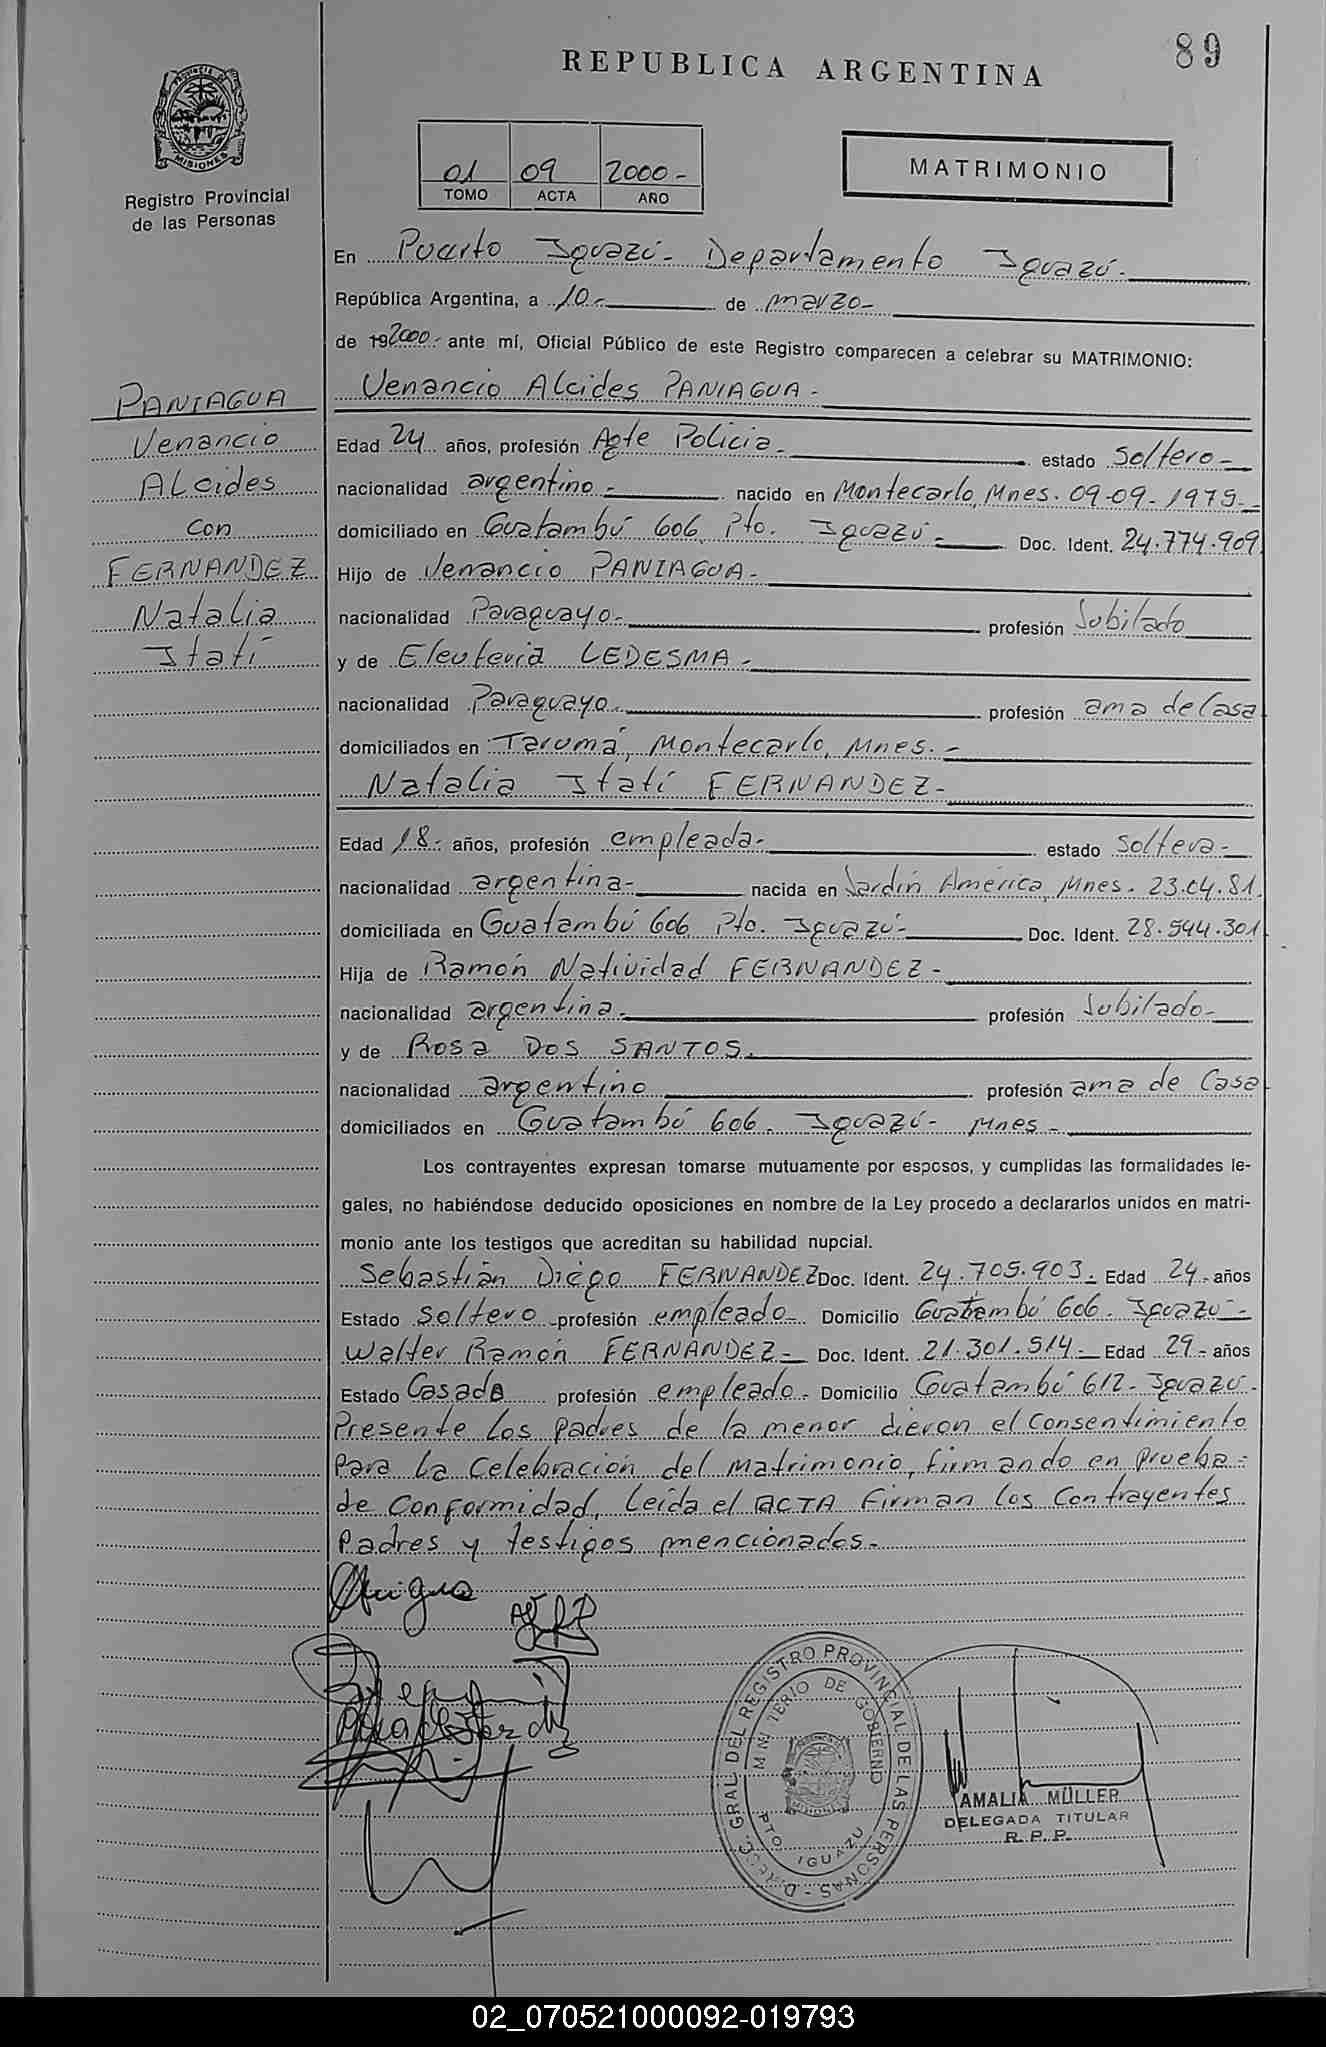 89
REPUBLICA ARGENTINA
PROVINCIA DE
MISIONES
Registro Provincial
de las Personas
01 09 2000-
TOMO ACTA AÑO
MATRIMONIO
En Puerto Iguazú- Departamento Iguazú-
República Argentina, a 10- de marzo-
de 192000- ante mí, Oficial Público de este Registro comparecen a celebrar su MATRIMONIO:
PANIAGUA
Venancio
Alcides
con
FERNANDEZ
Natalia
Itatí
Venancio Alcides PANIAGUA-
Edad 24 años, profesión Agte Policia- estado soltero-
nacionalidad argentino- nacido en Montecarlo, Mnes. 09-09-1975-
domiciliado en Guatambú 606, Pto. Iguazú- Doc. Ident. 24.774.909
Hijo de Venancio PANIAGUA-
nacionalidad Paraguayo- profesión Jubilado
y de Eleuteria LEDESMA-
nacionalidad Paraguayo profesión ama de Casa
domiciliados en Tarumá, Montecarlo, Mnes.-
Natalia Itatí FERNANDEZ-
Edad 18- años, profesión empleada- estado soltera-
nacionalidad argentina- nacida en Jardín América, Mnes. 23.04.81.
domiciliada en Guatambú 606, Pto. Iguazú- Doc. Ident. 28.544.301
Hija de Ramón Natividad FERNANDEZ-
nacionalidad argentina- profesión Jubilado-
y de Rosa DOS SANTOS.
nacionalidad argentino profesión ama de Casa
domiciliados en Guatambú 606. Iguazú- Mnes-
Los contrayentes expresan tomarse mutuamente por esposos, y cumplidas las formalidades le-
gales, no habiéndose deducido oposiciones en nombre de la Ley procedo a declararlos unidos en matri-
monio ante los testigos que acreditan su habilidad nupcial.
Sebastián Diego FERNANDEZ Doc. Ident. 24.705.903- Edad 24- años
Estado soltero profesión empleado- Domicilio Guatambú 606. Iguazú-
Walter Ramón FERNANDEZ- Doc. Ident. 21.301.514- Edad 29- años
Estado Casado profesión empleado- Domicilio Guatambú 612- Iguazú-
Presente los padres de la menor dieron el consentimiento
para la celebración del matrimonio, firmando en prueba-
de conformidad, leída el ACTA firman los contrayentes
padres y testigos mencionados-
DIRECC. GRAL. DEL REGISTRO PROVINCIAL DE LAS PERSONAS
MINISTERIO DE GOBIERNO
PTO. IGUAZU
AMALIA MÜLLER
DELEGADA TITULAR
R.P.P.
02_070521000092-019793